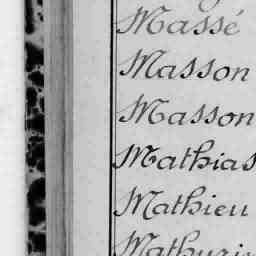 Massé
Masson
Masson
Mathias
Mathieu
Mathurin